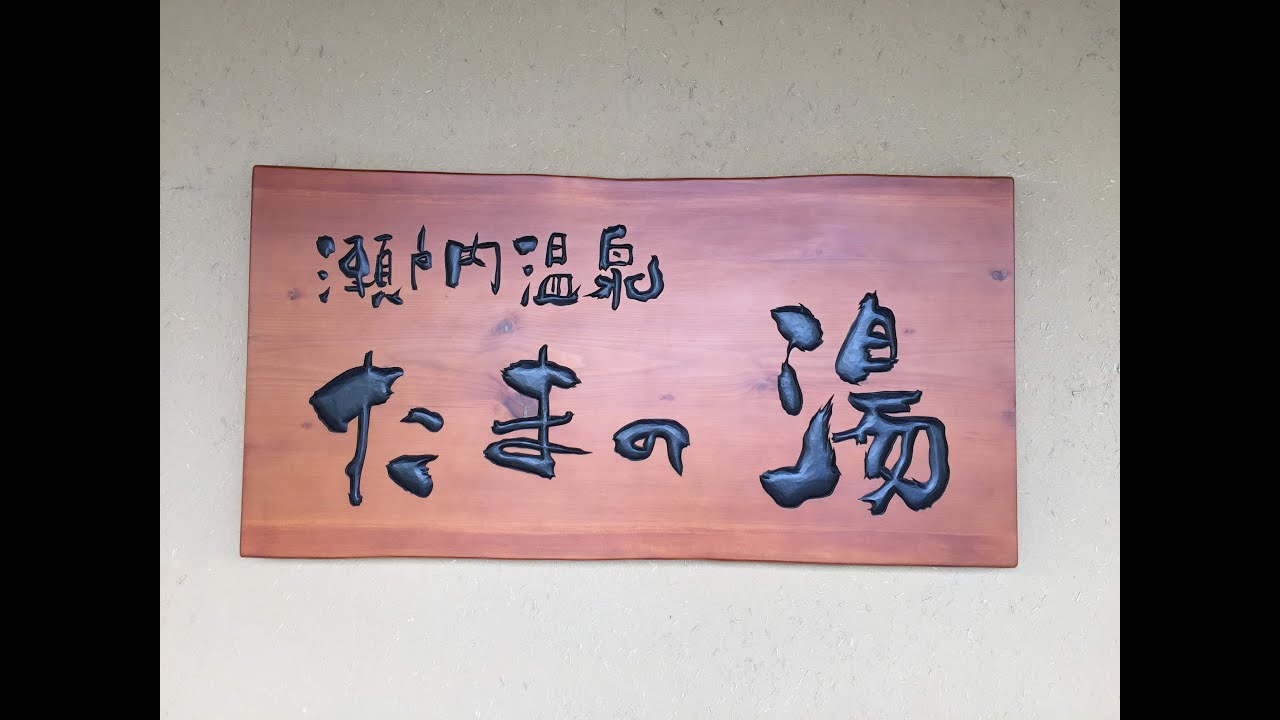 瀬戸内温泉
たまの湯